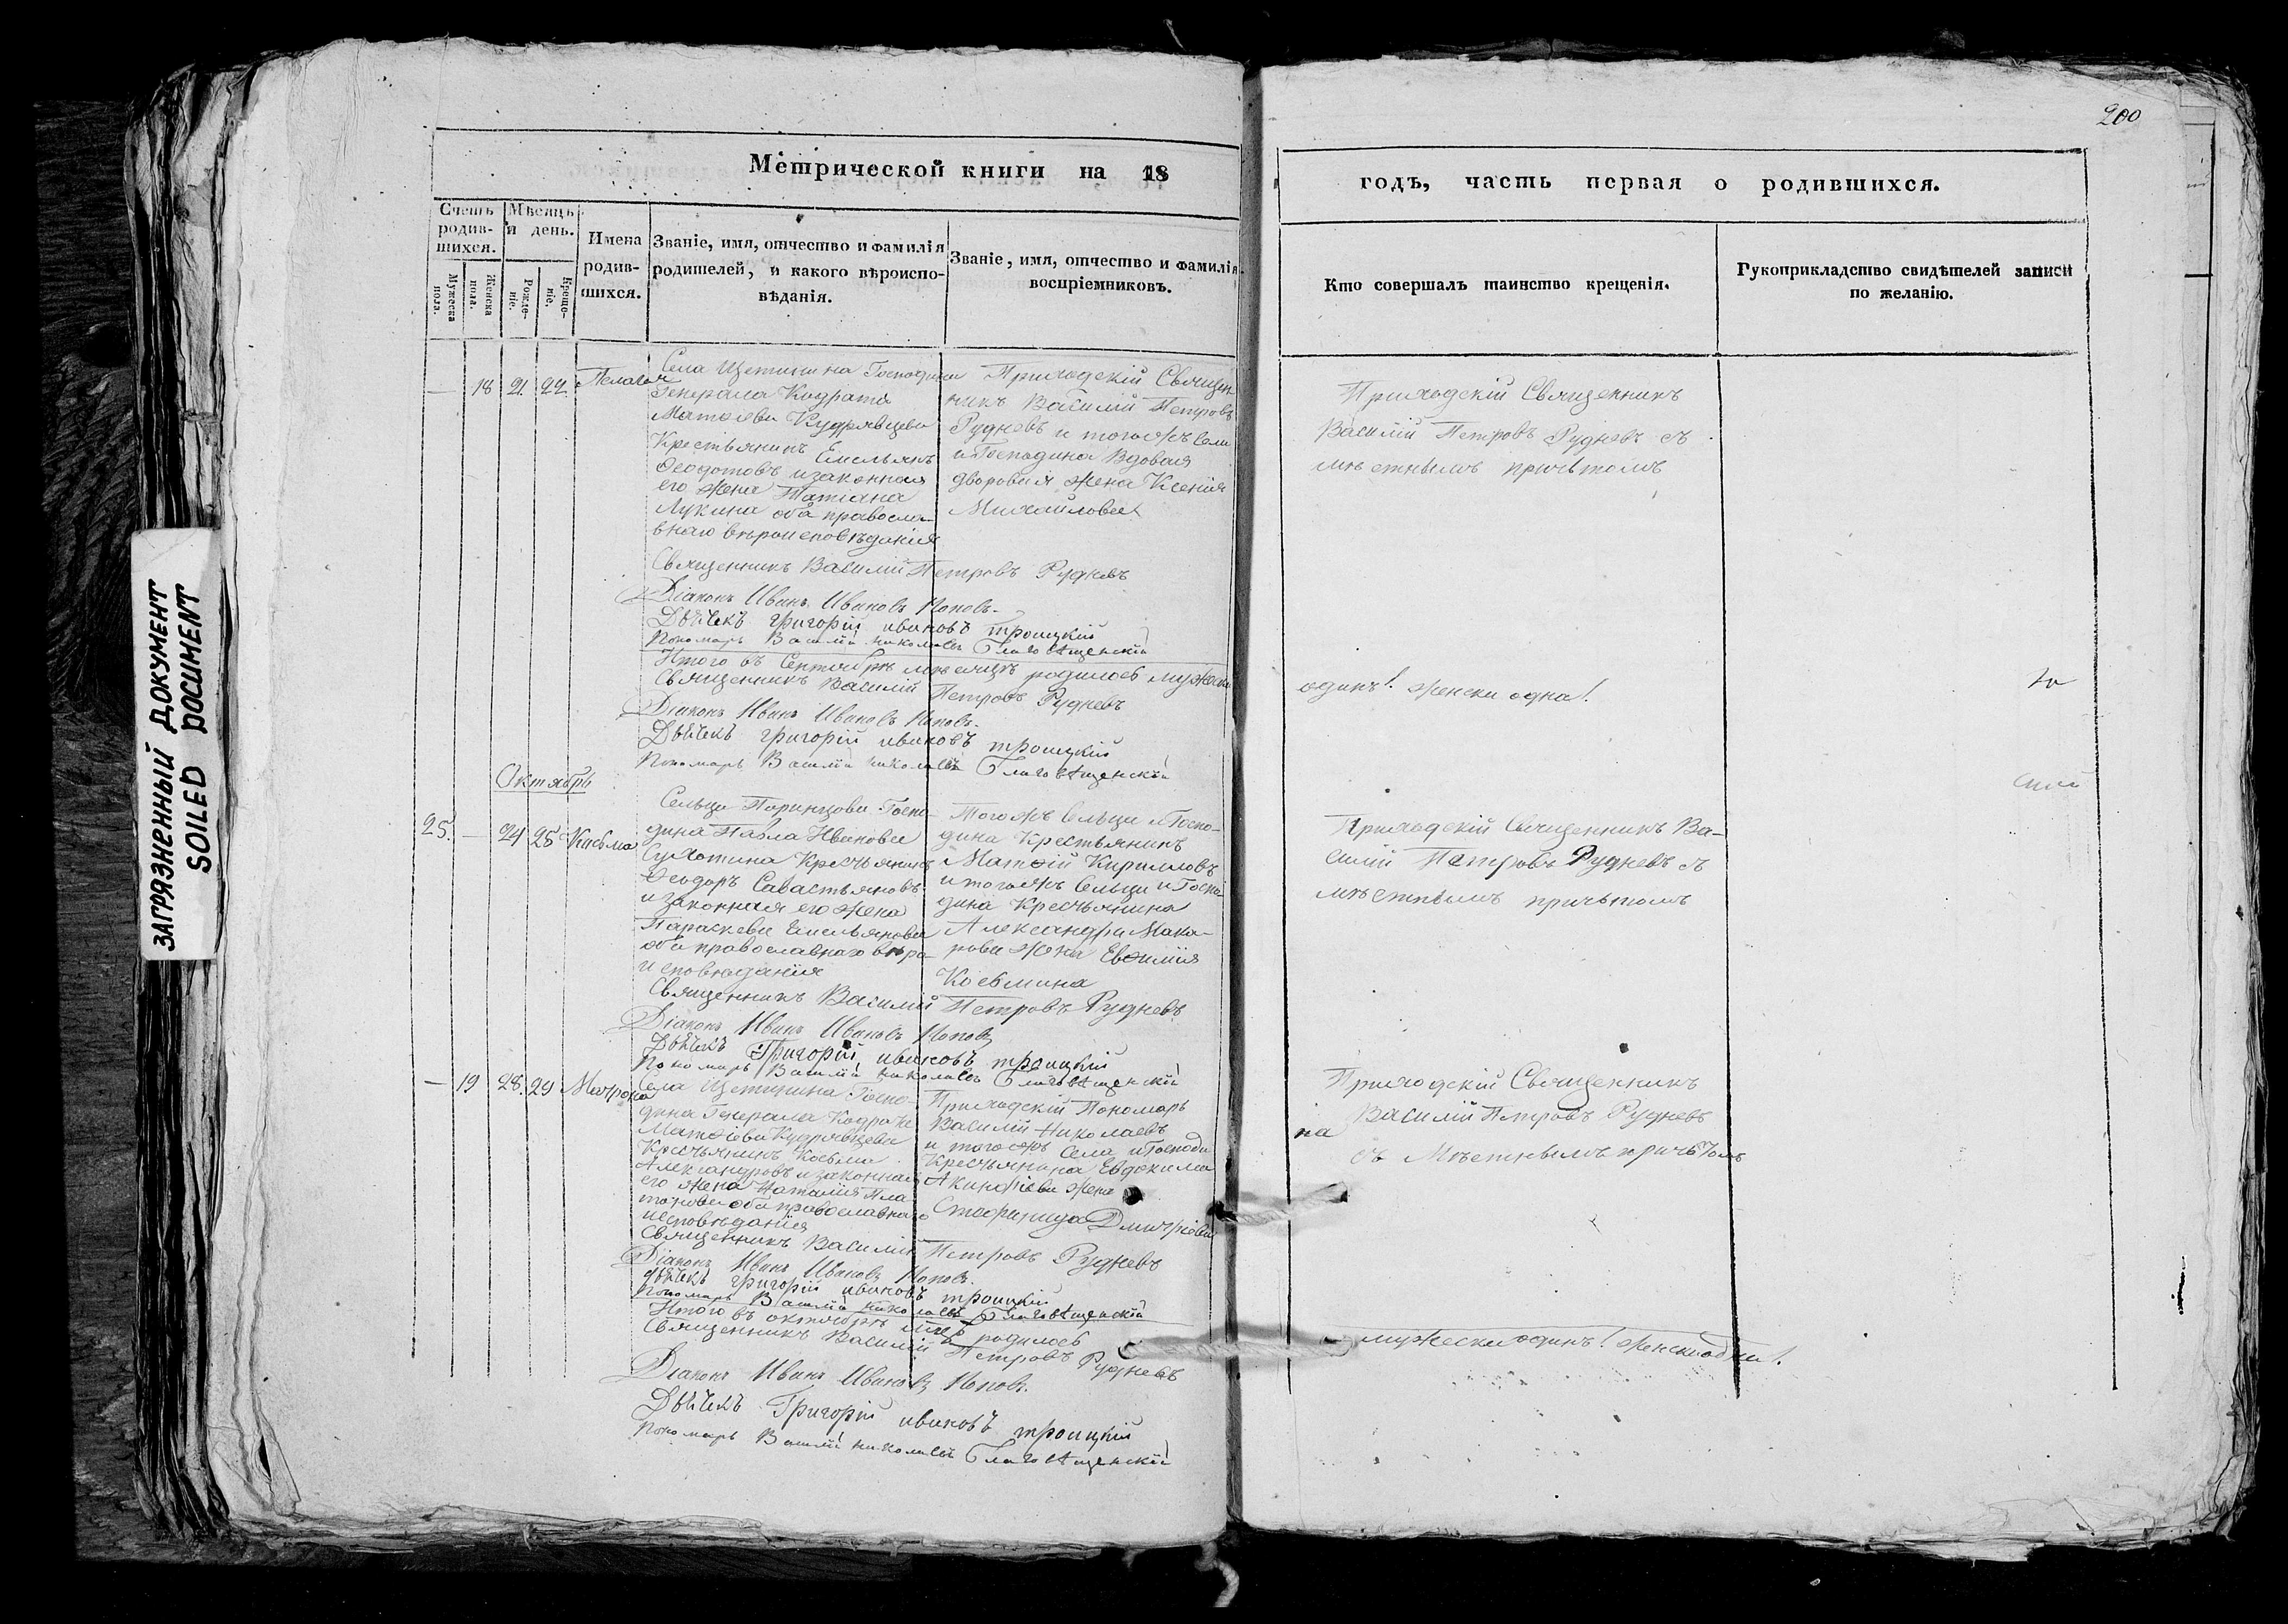 200
Метрической книги на 18
годъ, часть первая о родившихся.
Счетъ родив-шихся.
Мѣсяцъ и день.
Имена родив-шихся.
Званіе, имя, отчество и фамилія родителей, и какого вѣроиспо-вѣданія.
Званіе, имя, отчество и фамилія воспріемниковъ.
Кто совершалъ таинство крещенія.
Рукоприкладство свидѣтелей записи по желанію.
Мужеска пола.
Женска пола.
Рожде-ніе.
Креще-ніе.
— 18 21 22 Пелагея
Села Щетинина Господина
Генерала Кодрата
Матѳіева Кудрявцева
Крестьянинъ Емельянъ
Ѳеодотовъ и законная
его жена Татіана
Лукина оба правосла-
внаго вѣроисповѣданія
Приходскій Священ-
никъ Василій Петровъ
Рудневъ и тогожъ Села
и Господина Вдовая
дворовая жена Ксенія
Михайлова
Приходскій Священникъ
Василій Петровъ Рудневъ съ
мѣстнымъ причтомъ
Священникъ Василій Петровъ Рудневъ
Діаконъ Иванъ Ивановъ Поповъ.
Дьячекъ Григорій Ивановъ Троицкій
Пономарь Василій Николаевъ Благовѣщенскій
Итого въ Сентябрѣ мѣсяцѣ родилось мужеска
одинъ! женска одна!
Священникъ Василій Петровъ Рудневъ
Діаконъ Иванъ Ивановъ Поповъ.
Дьячекъ Григорій Ивановъ Троицкій
Пономарь Василій Николаевъ Благовѣщенскій
Октябрь
25. — 24 25 Косьма
Сельца Господина
Павла Иванова
Сухотина Крестьянинъ
Ѳеодоръ Савастьяновъ
и законная его жена
Параскева Емельянова
оба православнаго вѣро-
исповѣданія
Тогожъ Сельца и Госпо-
дина Крестьянинъ
Матѳій Кириловъ
и тогожъ Сельца и Госпо
дина Крестьянина
Александра Мака-
рова жена Евѳимія
Косьмина
Приходскій Священникъ Ва-
силій Петровъ Рудневъ съ
мѣстнымъ причьтомъ
Священникъ Василій Петровъ Рудневъ
Діаконъ Иванъ Ивановъ Поповъ
Дьячекъ Григорій Ивановъ Троицкій
Пономарь Василій Николаевъ Благовѣщенскій
— 19 28. 29 Матрона
Села Щетинина Госпо-
дина Генерала Кодрата
Матѳіева Кудрявцева
Крестьянинъ Косьма
Александровъ и законная
его жена Наталія Пла
тонова оба православнаго
исповѣданія
Приходскій Пономарь
Василій Николаевъ
и тогожъ Села и Господи
на
Крестьянина Евдокима
Акинѳіева жена
Дмитріева
Приходскій Священникъ
Василій Петровъ Рудневъ
съ Мѣстнымъ причьтомъ
Священникъ Василій Петровъ Рудневъ
Діаконъ Иванъ Ивановъ Поповъ.
Дьячекъ Григорій Ивановъ Троицкій
Пономарь Василій Николаевъ Благовѣщенскій
Итого въ октябрѣ родилось
мужеска одинъ! женска одна!
Священникъ Василій Петровъ Рудневъ
Діаконъ Иванъ Ивановъ Поповъ.
Дьячекъ Григорій Ивановъ Троицкій
Пономарь Василій Николаевъ Благовѣщенскій
ЗАГРЯЗНЕННЫЙ ДОКУМЕНТ
SOILED DOCUMENT